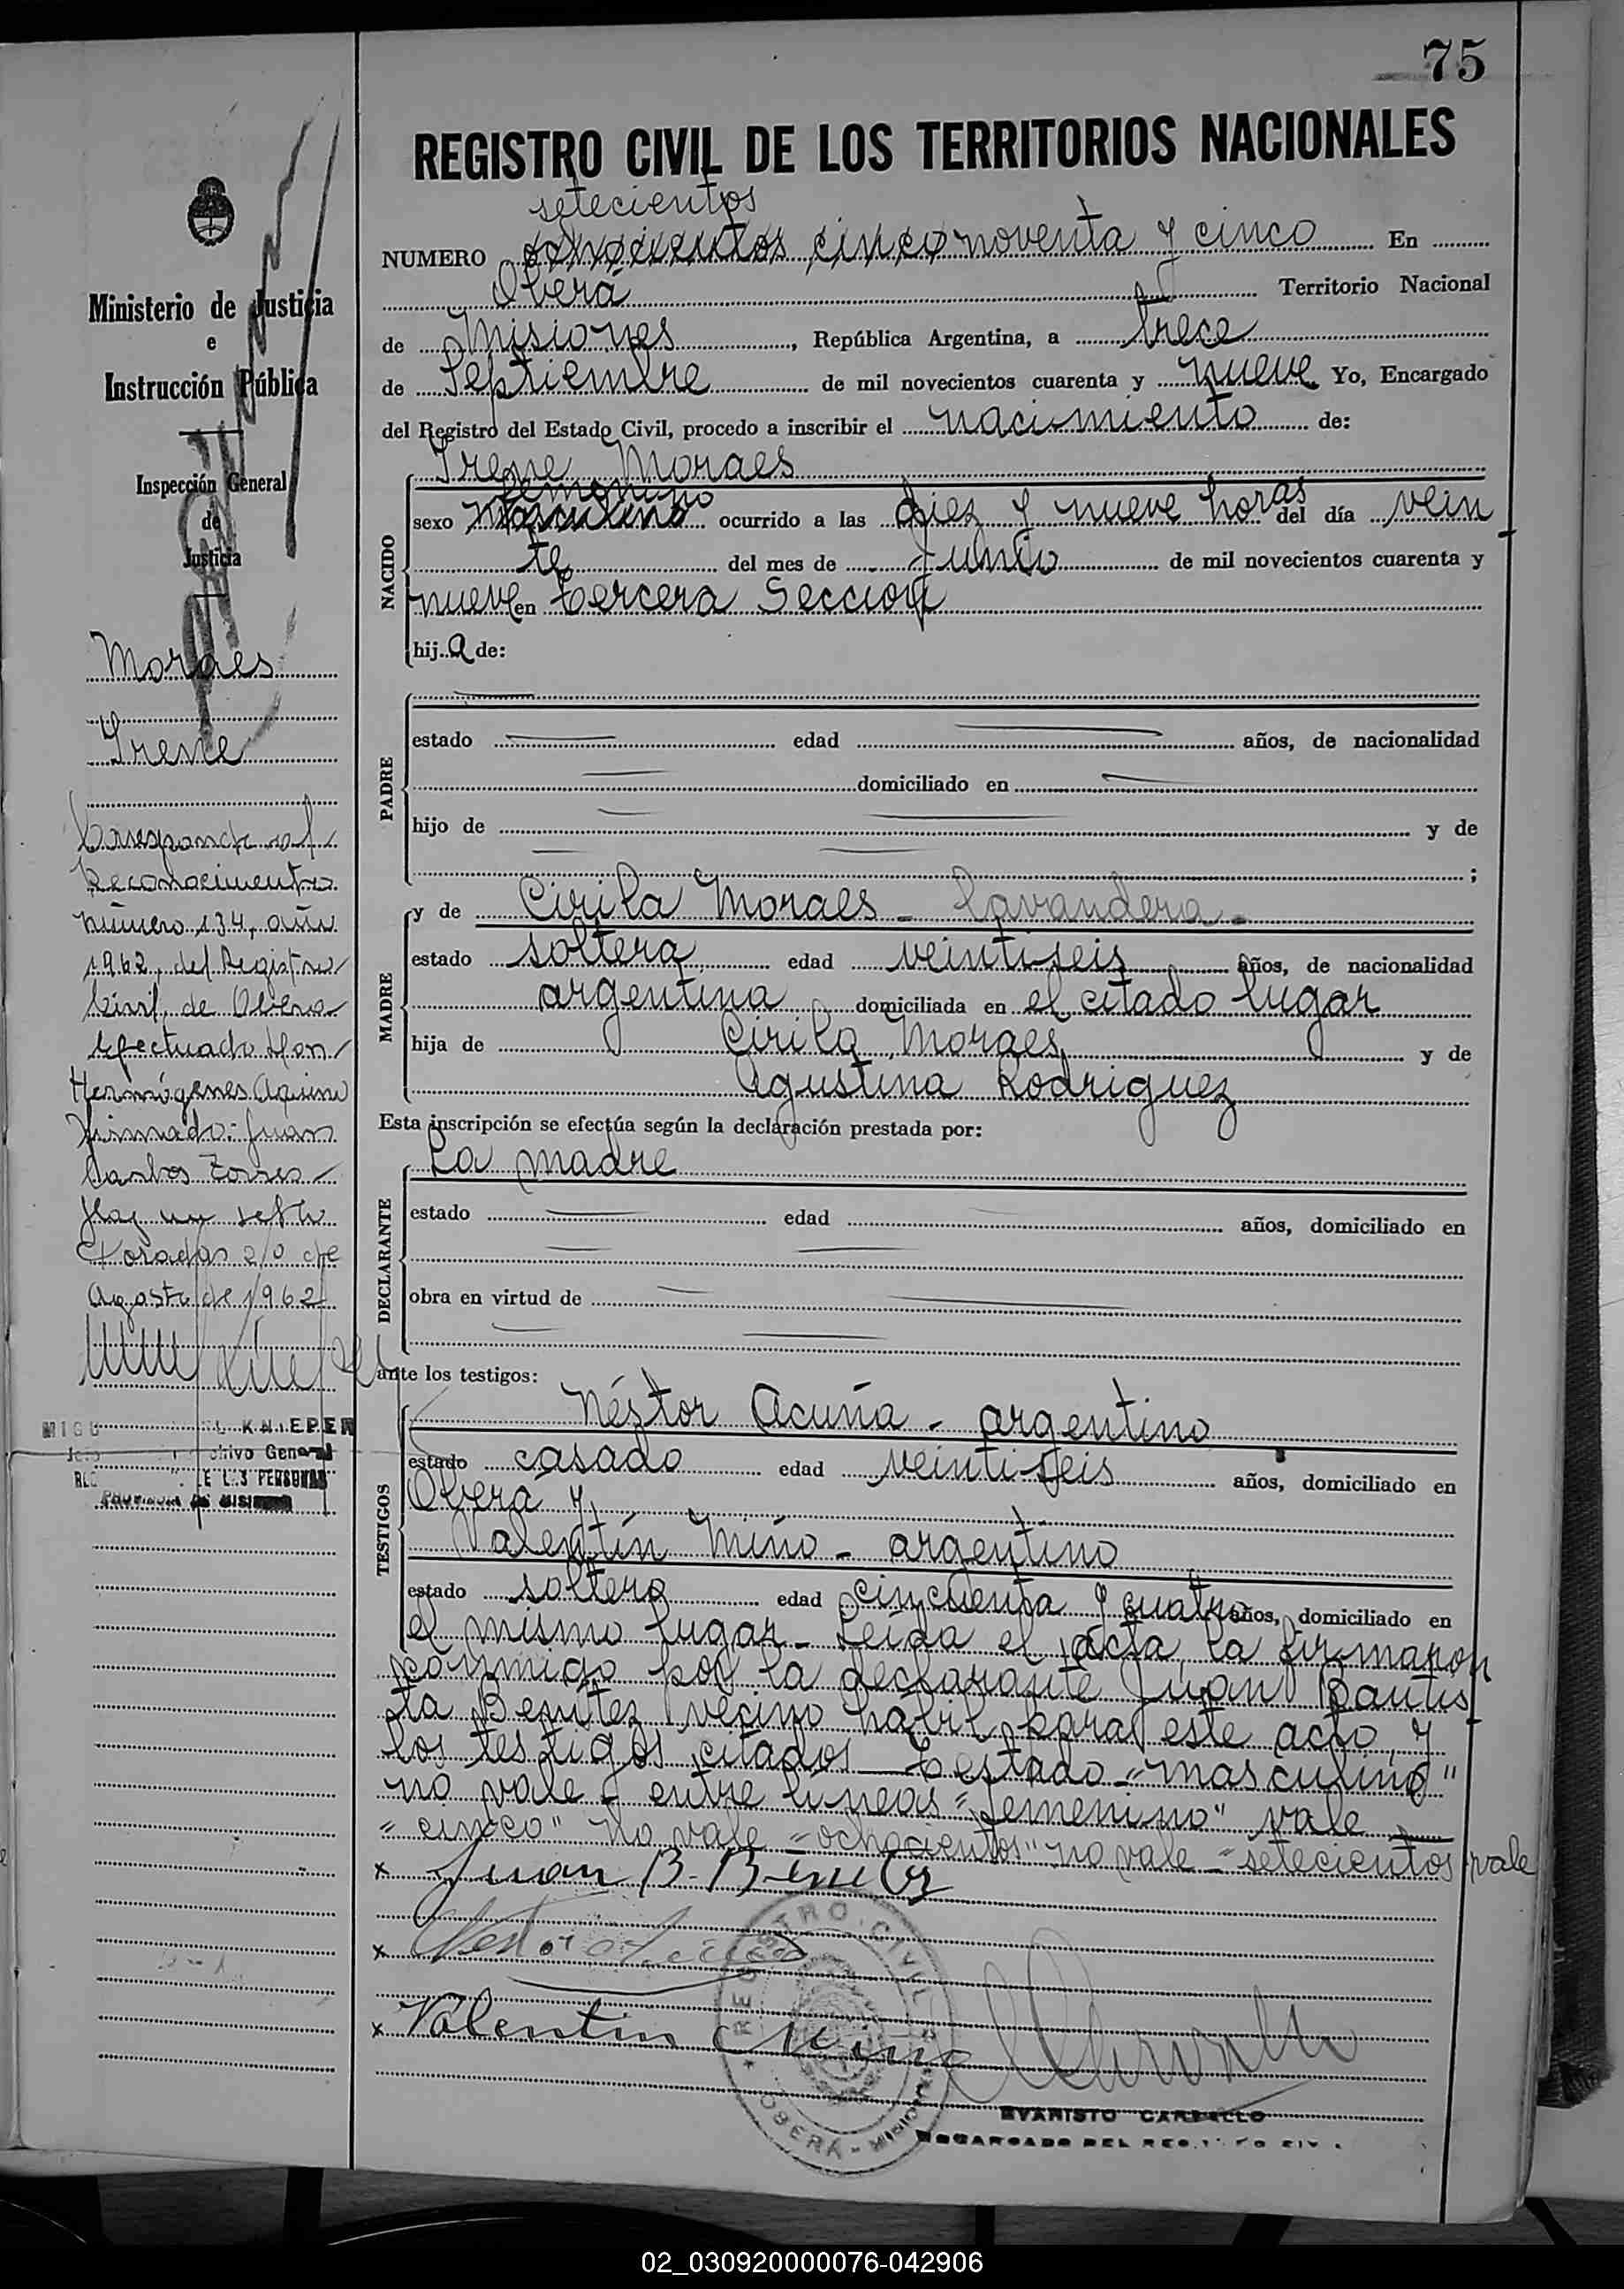 75
REGISTRO CIVIL DE LOS TERRITORIOS NACIONALES
setecientos
NUMERO ochocientos cinco noventa y cinco En
Oberá Territorio Nacional
de Misiones, República Argentina, a trece
de Septiembre de mil novecientos cuarenta y nueve Yo, Encargado
del Registro del Estado Civil, procedo a inscribir el nacimiento de:
Irene Moraes
femenino
NACIDO
sexo masculino ocurrido a las diez y nueve horas del día vein
te del mes de Junio de mil novecientos cuarenta y
nueve en tercera Sección
hija de:
PADRE
estado edad años, de nacionalidad
domiciliado en
hijo de y de
;
y de Cirila Moraes - lavandera -
MADRE
estado soltera edad veintiseis años, de nacionalidad
argentina domiciliada en el citado lugar
hija de Cirila Moraes y de
Agustina Rodriguez
Esta inscripción se efectúa según la declaración prestada por:
La madre
DECLARANTE
estado edad años, domiciliado en
obra en virtud de
ante los testigos:
Néstor Acuña - argentino
TESTIGOS
estado casado edad veintiseis años, domiciliado en
Oberá y
Valentín Miño - argentino
estado soltero edad cincuenta y cuatro años, domiciliado en
el mismo lugar - Leída el acta, la firmaron
conmigo por la declarante Juan Bautis
ta Benítez vecino hábil para este acto, y
los testigos citados - testado - "masculino"
no vale - entre líneas "femenino" vale
"cinco" no vale - "ochocientos" no vale - "setecientos" vale
x Juan B. Benitez
x Nestor Acuña
x Valentin Miño
REGISTRO CIVIL
OBERÁ - MISIONES
EVARISTO CARBALLO
ENCARGADO DEL REG.
Ministerio de Justicia
e
Instrucción Pública
Inspección General
de
Justicia
Moraes
Irene
Corresponde al
Reconocimiento
número 134, año
1962, del Registro
Civil de Oberá
efectuado por
Hermógenes Aquino
Firmado: Juan
Carlos Torres
Hay un sello
Posadas 20 de
Agosto de 1962
KNIEPER
Archivo General
DE LAS PERSONAS
PROVINCIA DE MISIONES
02_030920000076-042906